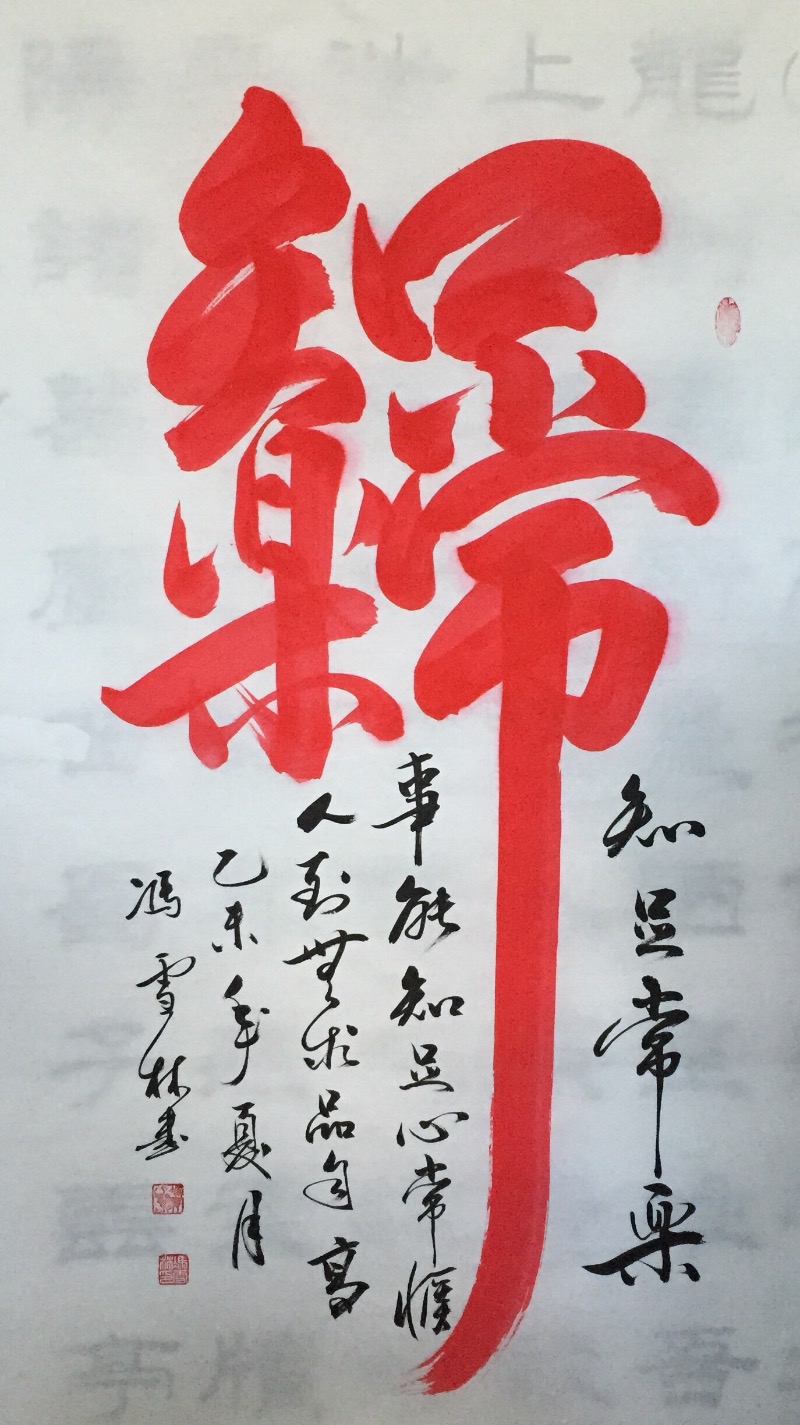 知足常樂
知足常樂
事能知足心常愜
人到無求品自高
乙未年夏月
馮雪林書